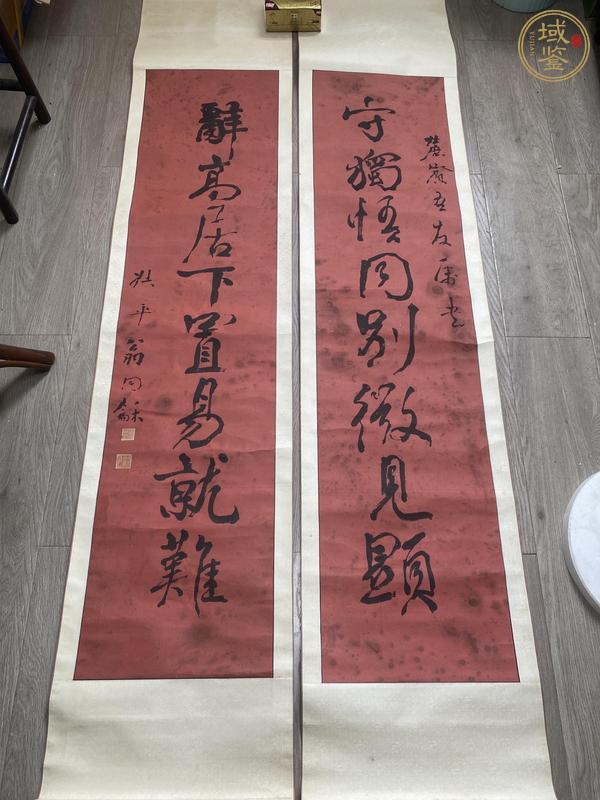 域鉴
YUJIAN
友屬書
守獨悟同別微見顯
辭高居下置易就難
叔平翁同龢